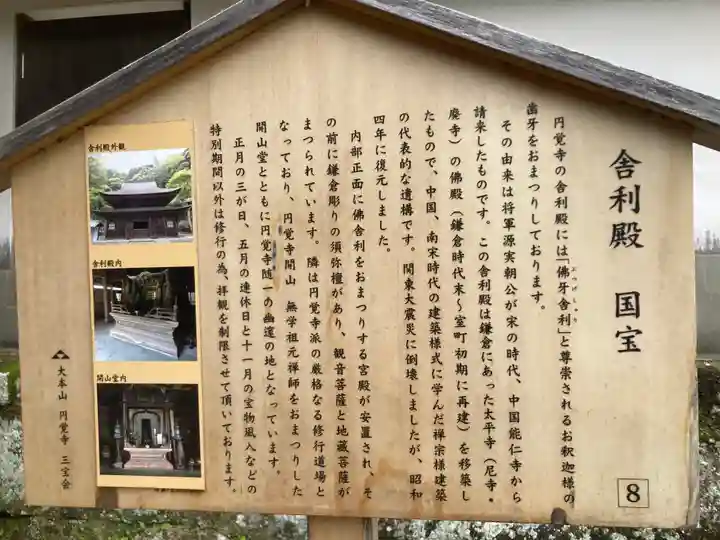 舎利殿 国宝
円覚寺の舎利殿には「佛牙舎利」と尊崇されるお釈迦様の
ぶつげしゃり
歯牙をおまつりしております。
その由来は将軍源実朝公が宋の時代、中国能仁寺から
請来したものです。この舎利殿は鎌倉にあった太平寺(尼寺・
廃寺)の佛殿(鎌倉時代末～室町初期に再建)を移築し
たもので、中国、南宋時代の建築様式に学んだ禅宗様建築
の代表的な遺構です。関東大震災に倒壊しましたが、昭和
四年に復元しました。
内部正面に佛舎利をおまつりする宮殿が安置され、そ
の前に鎌倉彫りの須弥壇があり、観音菩薩と地蔵菩薩が
まつられています。隣は円覚寺派の厳格なる修行道場と
なっており、円覚寺開山 無学祖元禅師をおまつりした
開山堂とともに円覚寺随一の幽邃の地となっています。
正月の三が日、五月の連休日と十一月の宝物風入などの
特別期間以外は修行の為、拝観を制限させて頂いております。
舎利殿外観
舎利殿内
開山堂内
大本山 円覚寺 三宝会
8